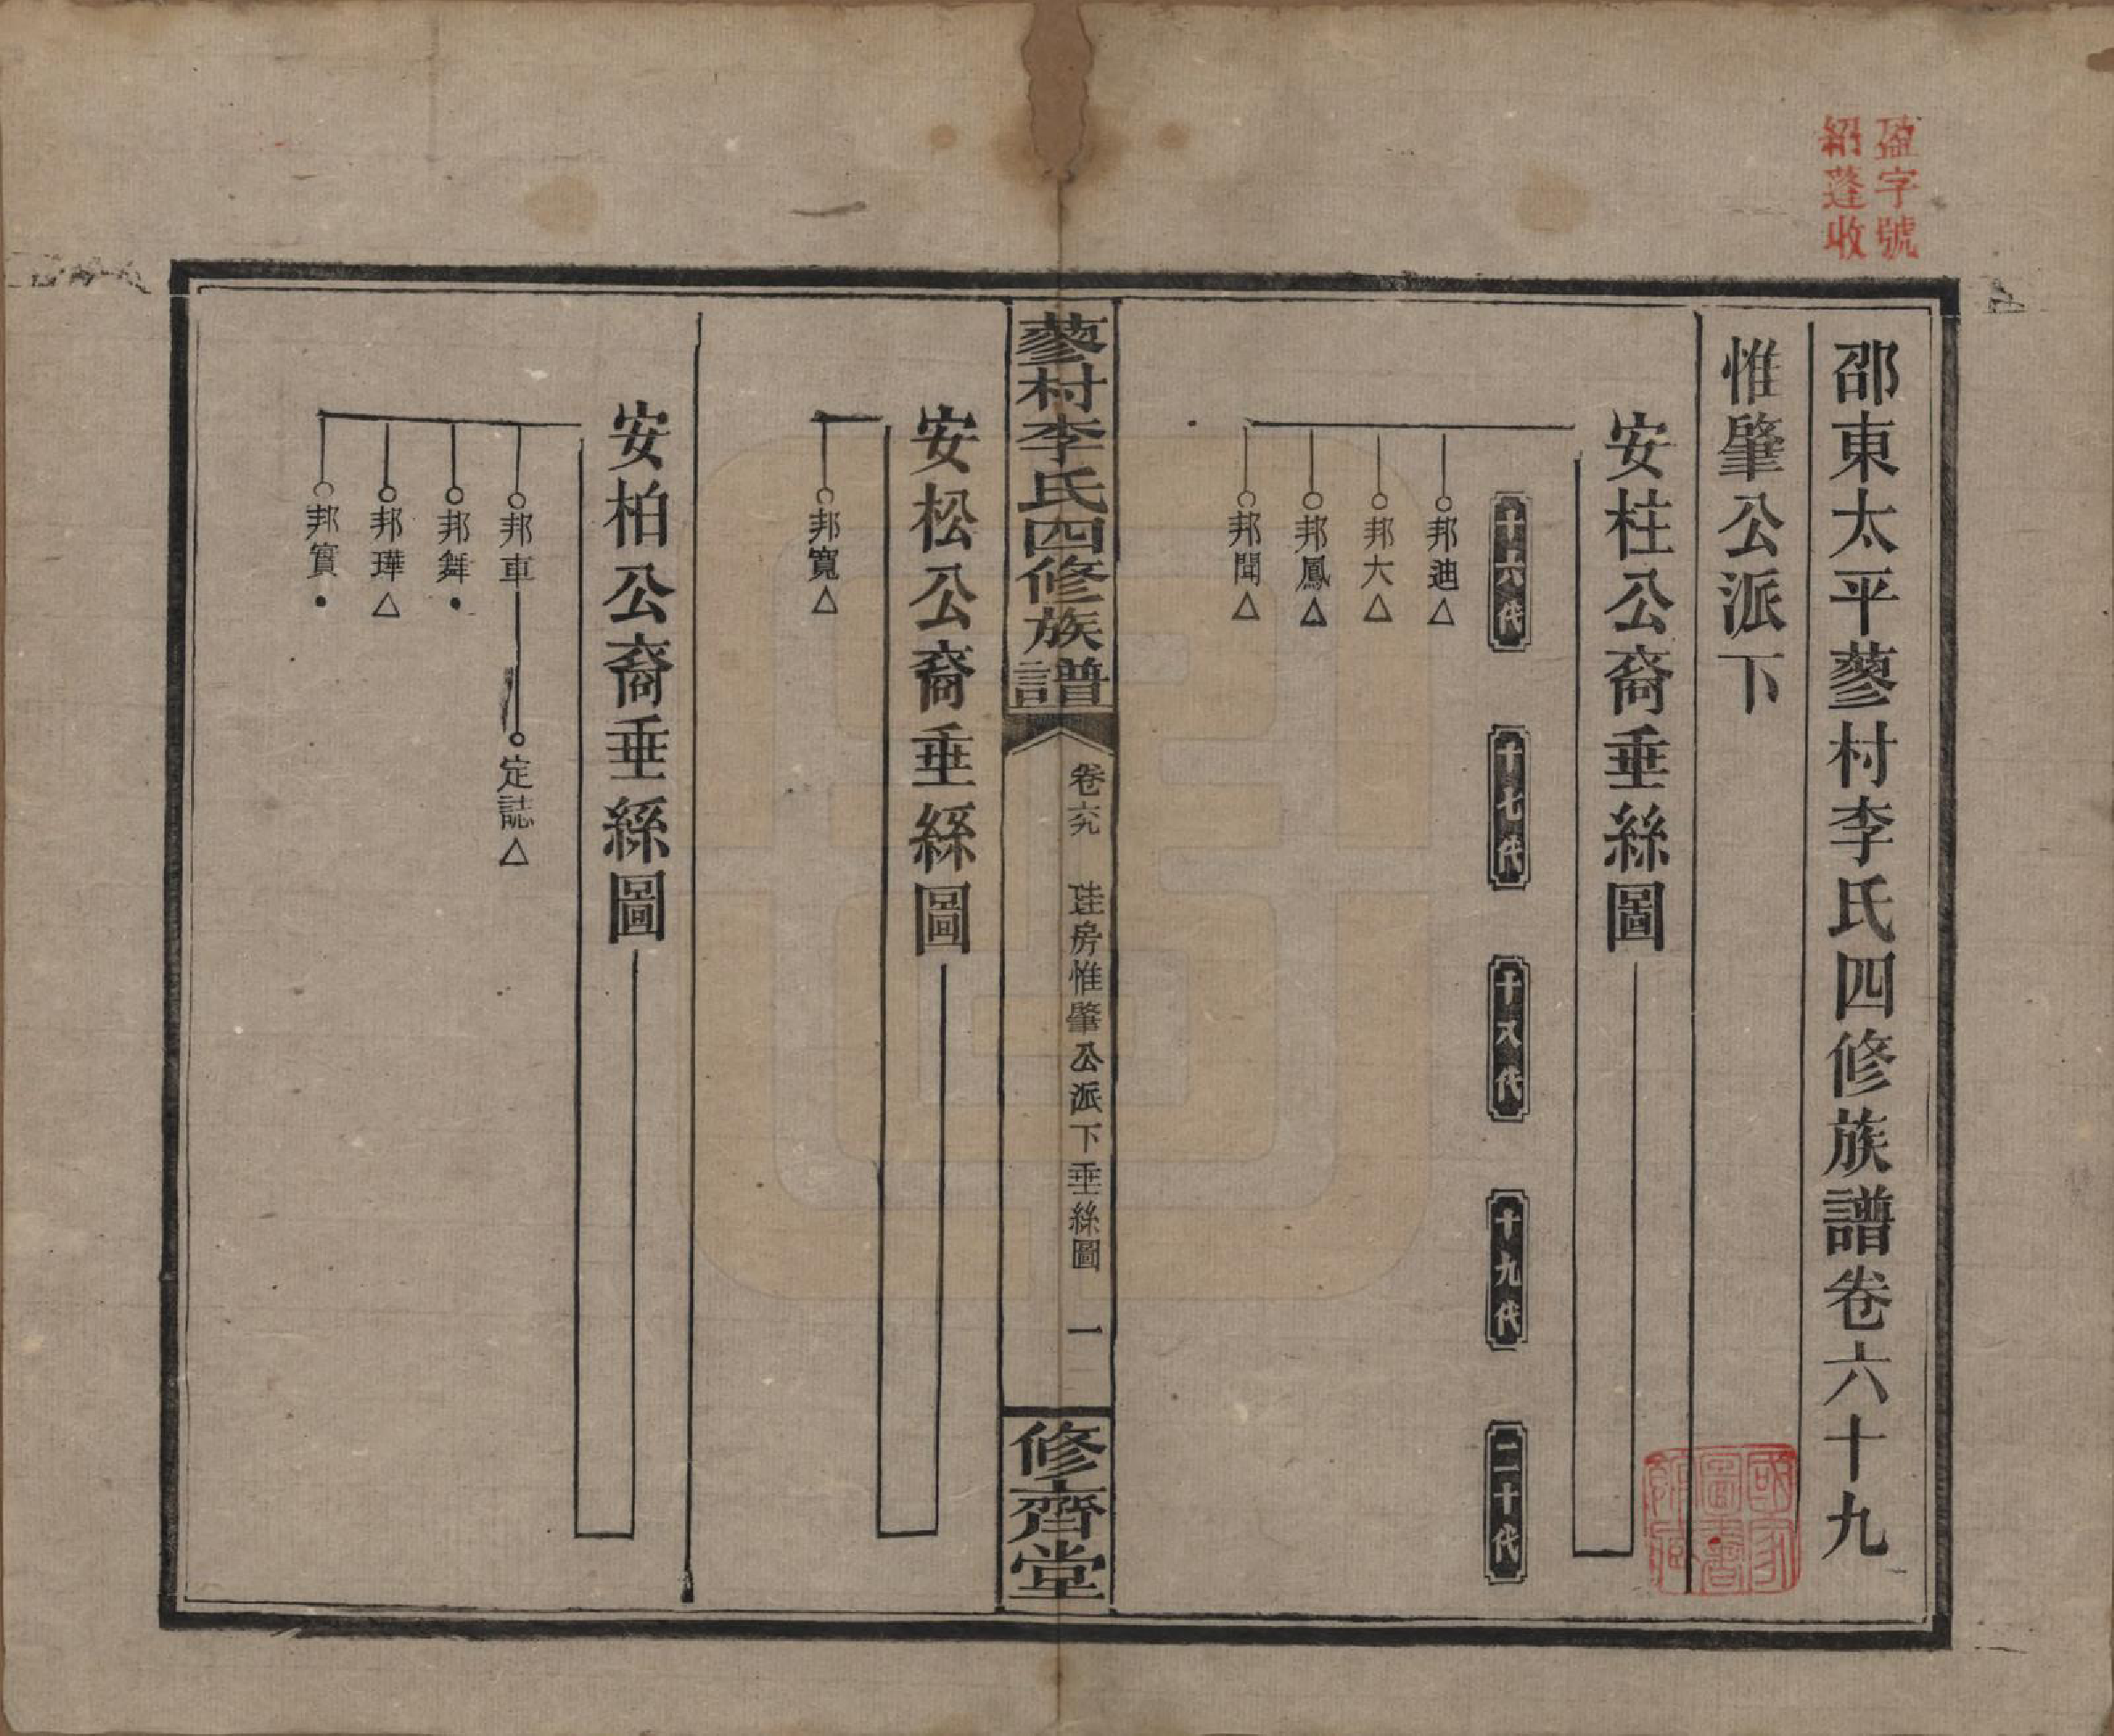 盈字號
紹蓬收
邵東太平蓼村李氏四修族譜卷六十九
惟肇公派下
安柱公裔垂絲圖
十六代
十七代
十八代
十九代
二十代
邦迪△
邦大△
邦鳳△
邦聞△
蓼村李氏四修族譜
卷六九
房惟肇公派下垂絲圖
一
修齊堂
安松公裔垂絲圖
邦寬△
安柏公裔垂絲圖
邦車
定誌△
邦舞•
邦瑋△
邦賓•
國家圖書館藏